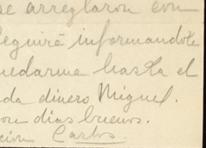 se arreglaron con
seguiré informandote
quedarme hasta el
da dinero Miguel.
dias buenos.
Carlos.